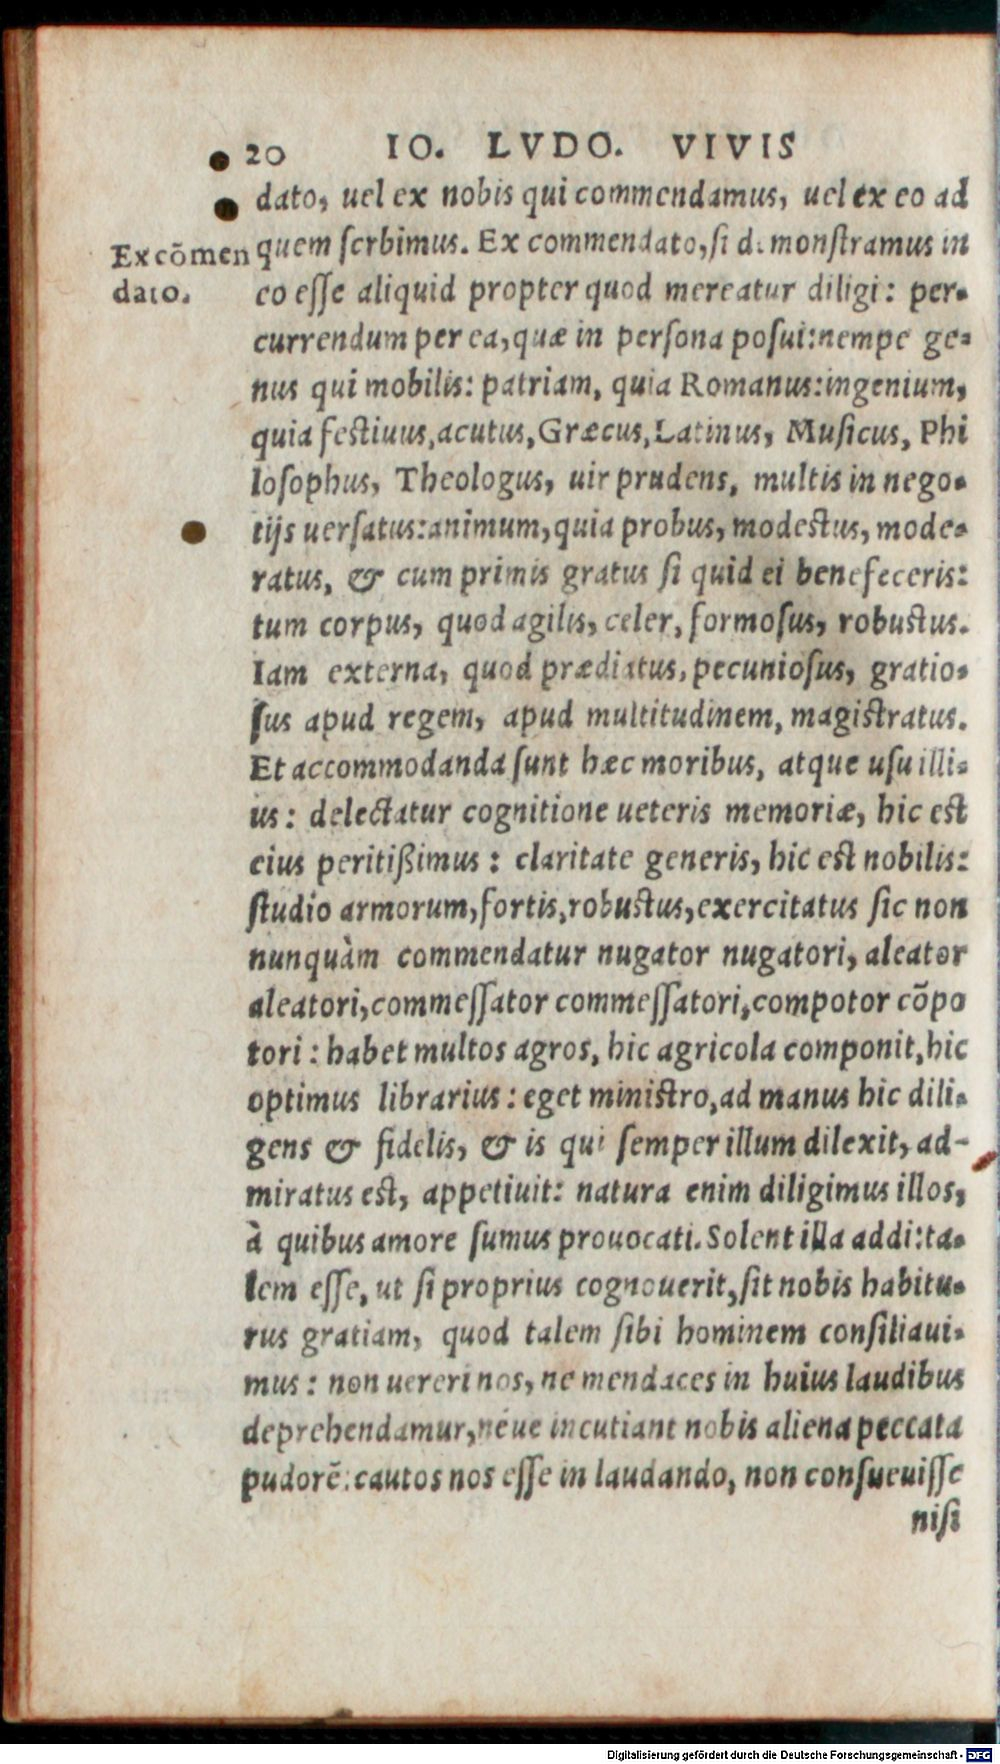 20 IO. LVDO. VIVIS
dato, uel ex nobis qui commendamus, uel ex eo ad
Ex cõmen
dato.
quem scrbimus. Ex commendato, si d. monstramus in
eo esse aliquid propter quod mereatur diligi: per-
currendum per ea, quæ in persona posui: nempe ge-
nus qui mobilis: patriam, quia Romanus: ingenium,
quia festiuus, acutus, Græcus, Latinus, Musicus, Phi
losophus, Theologus, uir prudens, multis in nego-
tijs uersatus: animum, quia probus, modestus, mode-
ratus, & cum primis gratus si quid ei benefeceris:
tum corpus, quod agilis, celer, formosus, robustus.
Iam externa, quod prædiatus, pecuniosus, gratio-
sus apud regem, apud multitudinem, magistratus.
Et accommodanda sunt hæc moribus, atque usu illi-
us: delectatur cognitione ueteris memoriæ, hic est
eius peritißimus: claritate generis, hic est nobilis:
studio armorum, fortis, robustus, exercitatus sic non
nunquàm commendatur nugator nugatori, aleator
aleatori, commessator commessatori, compotor cõpo
tori: habet multos agros, hic agricola componit, hic
optimus librarius: eget ministro, ad manus hic dili-
gens & fidelis, & is qui semper illum dilexit, ad-
miratus est, appetiuit: natura enim diligimus illos,
à quibus amore sumus prouocati. Solent illa addi: ta-
lem esse, ut si proprius cognouerit, sit nobis habitu-
rus gratiam, quod talem sibi hominem consiliaui-
mus: non uereri nos, ne mendaces in huius laudibus
deprehendamur, néue incutiant nobis aliena peccata
pudorẽ: cautos nos esse in laudando, non consueuisse
nisi
Digitalisierung gefördert durch die Deutsche Forschungsgemeinschaft - DFG